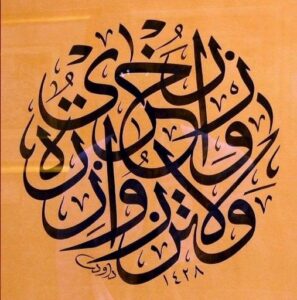 ولا تزر وازرة وزر أخرى
داود
١٤٢٨